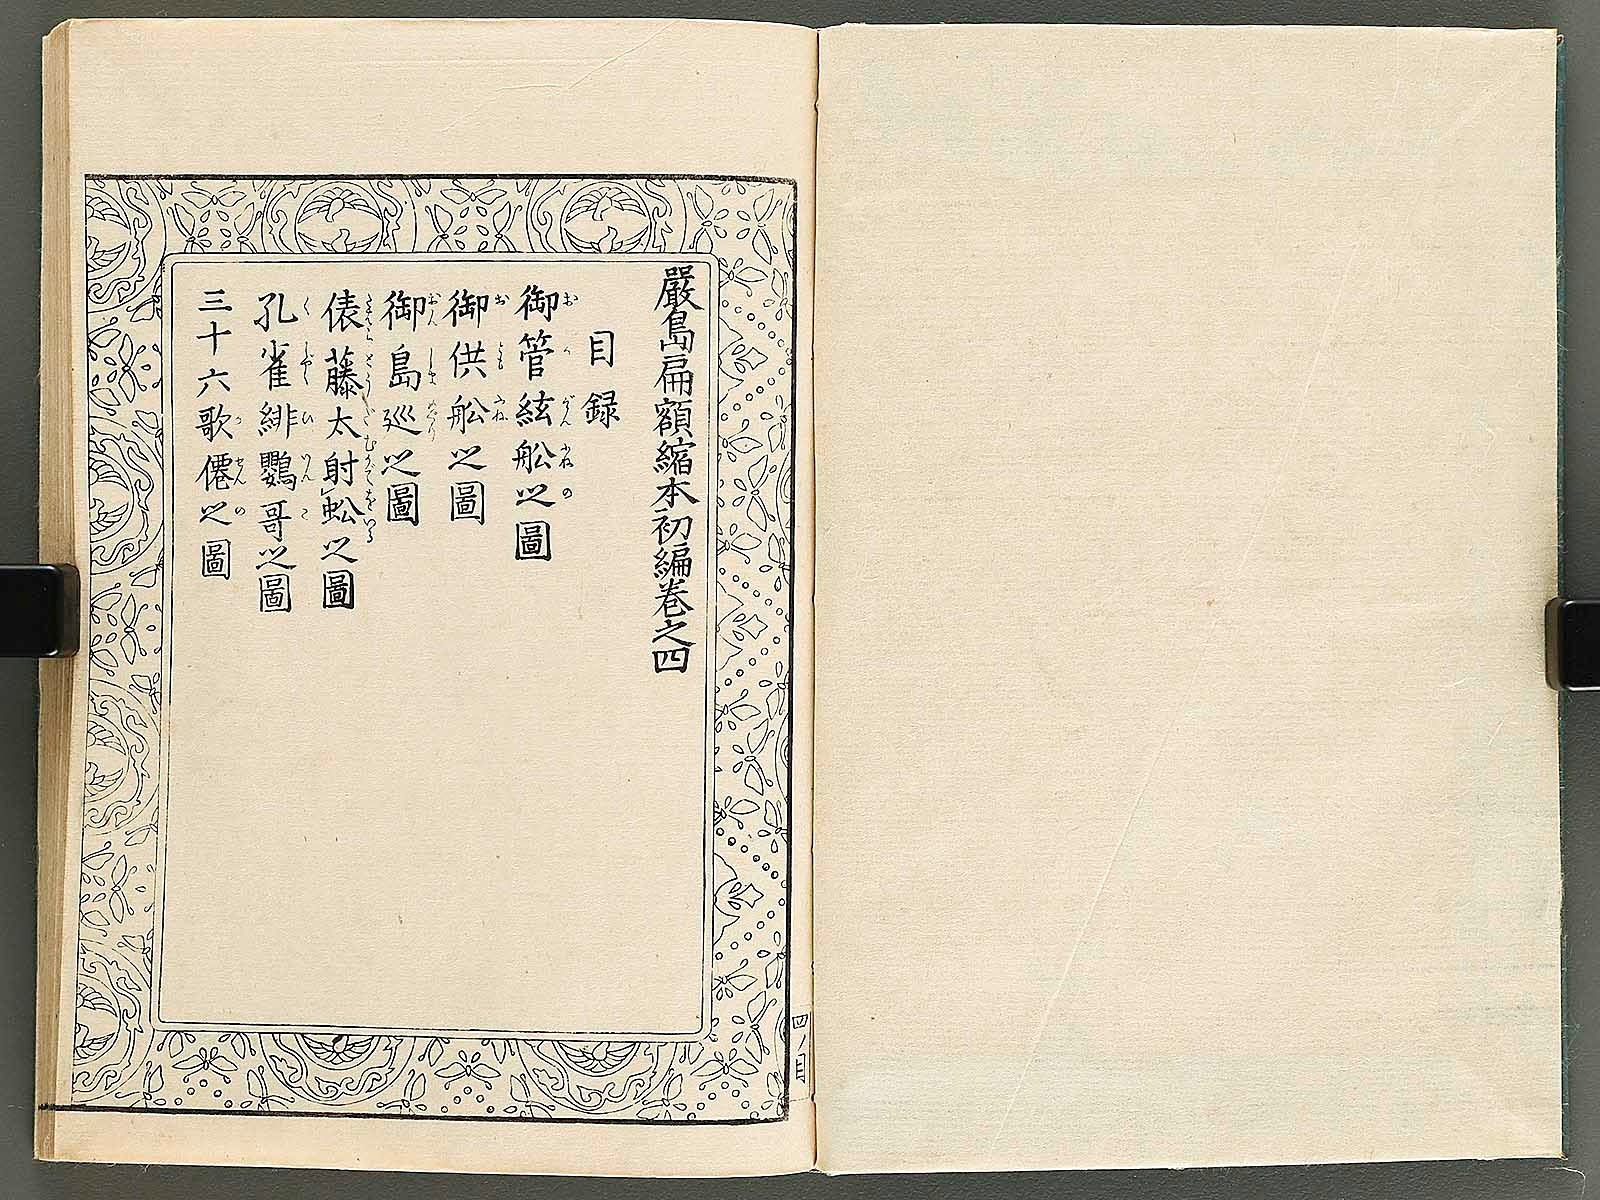 嚴島扁額縮本初編卷之四
目録
御管絃舩之圖
御供舩之圖
御島廻之圖
俵藤太射蚣之圖
孔雀緋鸚哥之圖
三十六歌僊之圖
四ノ目